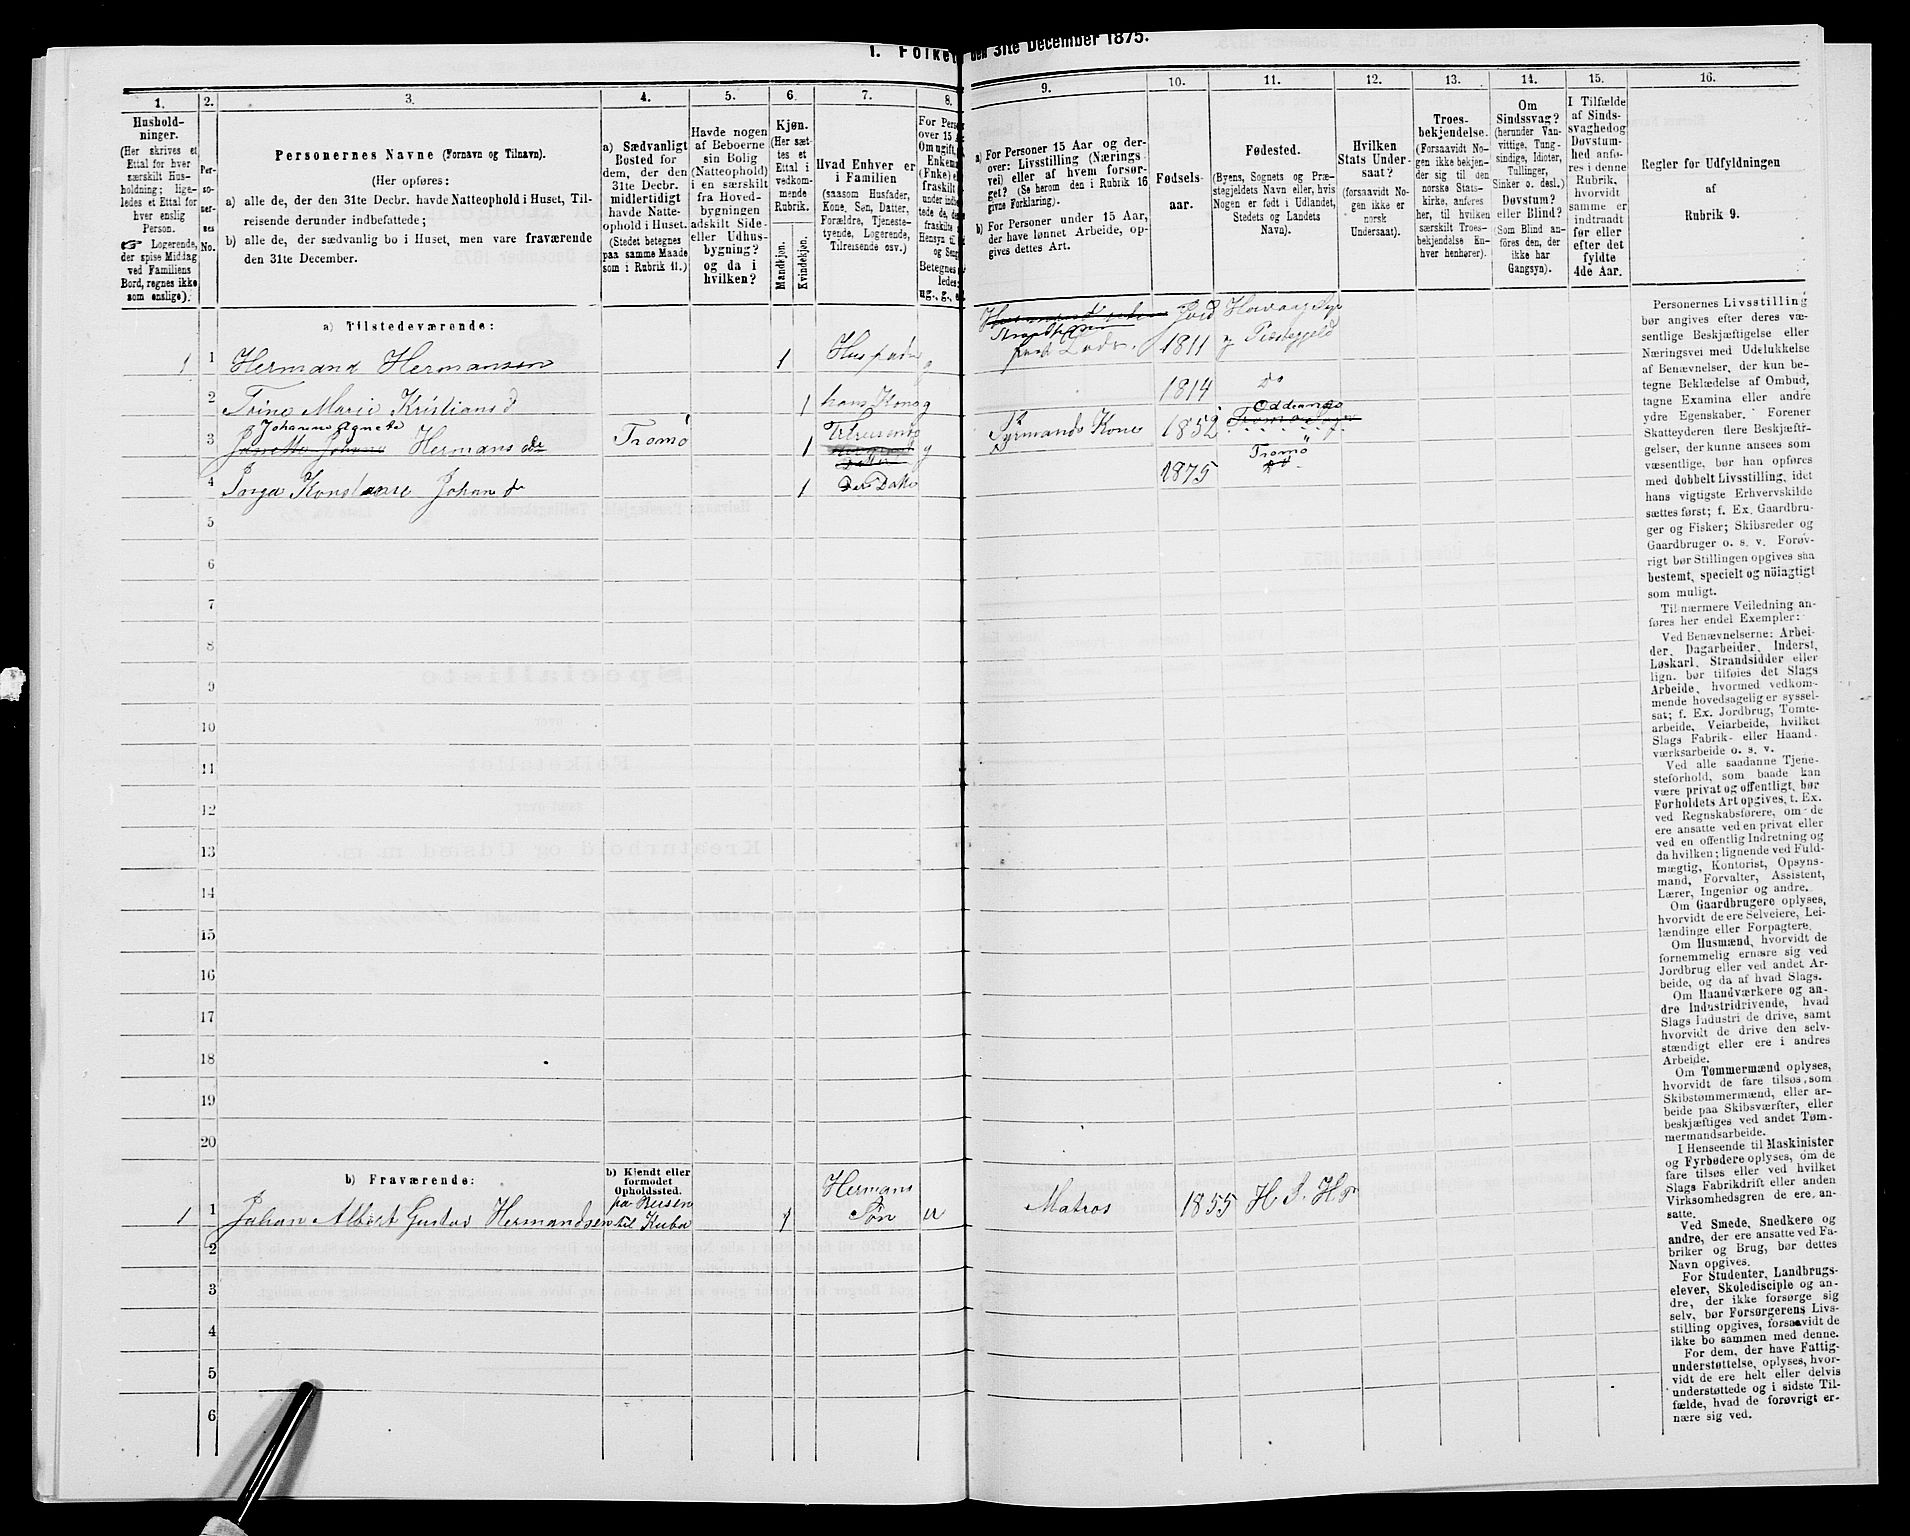 I. Folket
den 31te December 1875.
1.
2.
3.
4.
5.
6.
7.
8.
9.
10.
11.
12.
13.
14.
15.
16.
Hushold-
ninger.
(Her skrives et
Ettal for hver
særskilt Hus-
holdning; lige-
ledes et Ettal for
hver enslig
Person.
☞ Logerende,
der spise Middag
ved Familiens
Bord, regnes ikke
som enslige).
Per-
so-
ner-
nes
No.
Personernes Navne (Fornavn og Tilnavn).
(Her opføres:
a) alle de, der den 31te Decbr. havde Natteophold i Huset, Til-
reisende derunder indbefattede;
b) alle de, der sædvanlig bo i Huset, men vare fraværende
den 31te December.
a) Sædvanligt
Bosted for
dem, der den
31te Decbr.
midlertidigt
havde Natte-
ophold i Huset.
(Stedet betegnes
paa samme Maade
som i Rubrik 11.)
Havde nogen
af Beboerne
sin Bolig
(Natteophold)
i en særskilt
fra Hoved-
bygningen
adskilt Side-
eller Udhus-
bygning?
og da i
hvilken?
Kjøn.
(Her sæt-
tes et
Ettal i
vedkom-
mende
Rubrik.
Mandkjøn.
Kvindekjøn.
Hvad Enhver er
i Familien
(saasom Husfader,
Kone, Søn, Datter,
Forældre, Tjeneste-
tyende, Logerende,
Tilreisende osv.)
For Pers
over 15 A
Om ugift,
Enkem
(Fnke) e
fraskilt
under inde
tede de, de
fraskilte
Hensyn ti
og Seng
Betegnes
ledes:
ug., g., e
a) For Personer 15 Aar og der-
over: Livsstilling (Nærings-
vei) eller af hvem forsør-
get? (Se herom den i Rubrik 16
givne Forklaring).
b) For Personer under 15 Aar,
der have lønnet Arbeide, op-
gives dettes Art.
Fødsels-
aar.
Fødested.
(Byens, Sognets og Præ-
stegjeldets Navn eller, hvis
Nogen er født i Udlandet,
Stedets og Landets
Navn).
Hvilken
Stats Under-
saat?
(forsaavidt No-
gen ikke er
norsk
Undersaat).
Troes-
bekjendelse.
(Forsaavidt No-
gen ikke bekjen-
der sig til den
norske Stats-
kirke, anføres
her, til hvilken
særskilt Troes-
bekjendelse En-
hver henhører).
Om
Sindssvag?
(herunder Van-
vittige, Tung-
sindige, Idioter,
Tullinger,
Sinker o. desl.)
Døvstum?
eller Blind?
(Som Blind an-
føres den, der
ikke har
Gangsyn).
I Tilfælde
af Sinds-
svaghed og
Døvstum-
hed anfø-
res i denne
Rubrik,
hvorvidt
samme er
indtraadt
før eller
efter det
fyldte
4de Aar.
Regler for Udfyldningen
af
Rubrik 9.
a) Tilstedeværende:
1 1 Hermand Hermansen 1 Husfader g 1811
2 Trine Marie Kristians d 1 hans Kone g 1814 do
Johanne Agnete
3 Hermans dtr Tromø 1 g Styrmands Kone 1852
Tromø
4 Konstanse Johan d 1 Datter 1875
5
6
7
8
9
10
11
12
13
14
15
16
17
18
19
20
b) Fraværende:
b) Kjendt eller
formodet
Opholdssted.
1 1 Johan Albert Gustav Hermandsen paa Reisen til Kuba 1 Hermans Søn u Matros 1855
2
3
4
5
6
Personernes Livsstilling
bør angives efter deres væ-
sentlige Beskjæftigelse eller
Næringsvei med Udelukkelse
af Benævnelser, der kun be-
tegne Beklædelse af Ombud,
tagne Examina eller andre
ydre Egenskaber. Forener
Skatteyderen flere Beskjæfti-
gelser, der kunne ansees som
væsentlige, bør han opføres
med dobbelt Livsstilling, idet
hans vigtigste Erhvervskilde
sættes først; f. Ex. Gaardbru-
ger og Fisker; Skibsreder og
Gaardbruger o. s. v. Forøv-
rigt bør Stillingen opgives saa
bestemt, specielt og nöiagtigt
som muligt.
Til nærmere Veiledning an-
føres her endel Exempler:
Ved Benævnelserne: Arbei-
der, Dagarbeider, Inderst,
Løskarl, Strandsidder eller
lign. bør tilføies det Slags
Arbeide, hvormed vedkom-
mende hovedsagelig er syssel-
sat; f. Ex. Jordbrug, Tomte-
arbeide, Veiarbeide, hvilket
Slags Fabrik- eller Haand-
værksarbeide o. s. v.
Ved alle saadanne Tjene-
steforhold, som baade kan
være privat og offentligt, bør
Forholdets Art opgives, t. Ex.
ved Regnskabsførere, om de
ere ansatte ved en privat eller
ved en offentlig Indretning og
da hvilken; lignende ved Fuld-
mægtig, Kontorist, Opsyns-
mand, Forvalter, Assistent,
Lærer, Ingeniør og andre.
Om Gaardbrugere oplyses,
hvorvidt de ere Selveiere, Lei-
lændinge eller Forpagtere.
Om Husmænd, hvorvidt de
fornemmelig ernære sig ved
Jordbrug eller ved andet Ar-
beide, og da af hvad Slags.
Om Haandværkere og an-
dre Industridrivende, hvad
Slags Industri de drive, samt
hvorvidt de drive den selv-
stændigt eller ere i andres
Arbeide.
Om Tømmermænd oplyses,
hvorvidt de fare tilsøs som
Skibstømmermænd, eller ar-
beide paa Skibsværfter, eller
beskjæftiges ved andet Tøm-
mermandsarbeide.
I Henseende til Maskinister
og Fyrbødere oplyses, om de
fare tilsøs eller ved hvilket
Slags Fabrikdrift eller anden
Virksomhedsgren de ere an-
satte.
Ved Smede, Snedkere og
andre, der ere ansatte ved Fa-
briker og Brug, bør dettes
Navn opgives.
For Studenter, Landbrugs-
elever, Skoledisciple og an-
dre, der ikke forsørge sig
selv, bør Forsørgerens Livs-
stilling opgives, forsaavidt de
ikke bo sammen med denne.
For dem, der have Fattig-
understøttelse, oplyses, hvor-
vidt de ere helt eller delvis
understøttede og i sidste Til-
fælde, hvad de forøvrigt er-
nære sig ved.